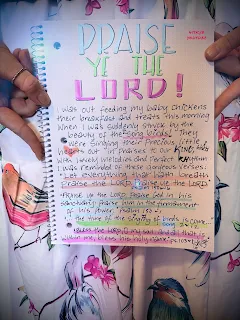 PRAISE
YE THE
LORD!
I was out feeding my baby chickens
their breakfast and treats this morning
when I was suddenly struck by the
beauty of the song birds! They
were singing their precious little
hearts out in praises to our KING,
with lovely melodies and perfect rhythm
I was reminded of these wondrous verses:
"Let everything that hath breath
Praise the LORD. Praise ye the LORD"
"Praise ye the LORD. Praise God in his
sanctuary: praise him in the firmament
of his power." Psalm 150:1
the time of the singing of birds is come
"Bless the LORD, O my soul: and all that is
within me, bless his holy name." Ps. 103:1